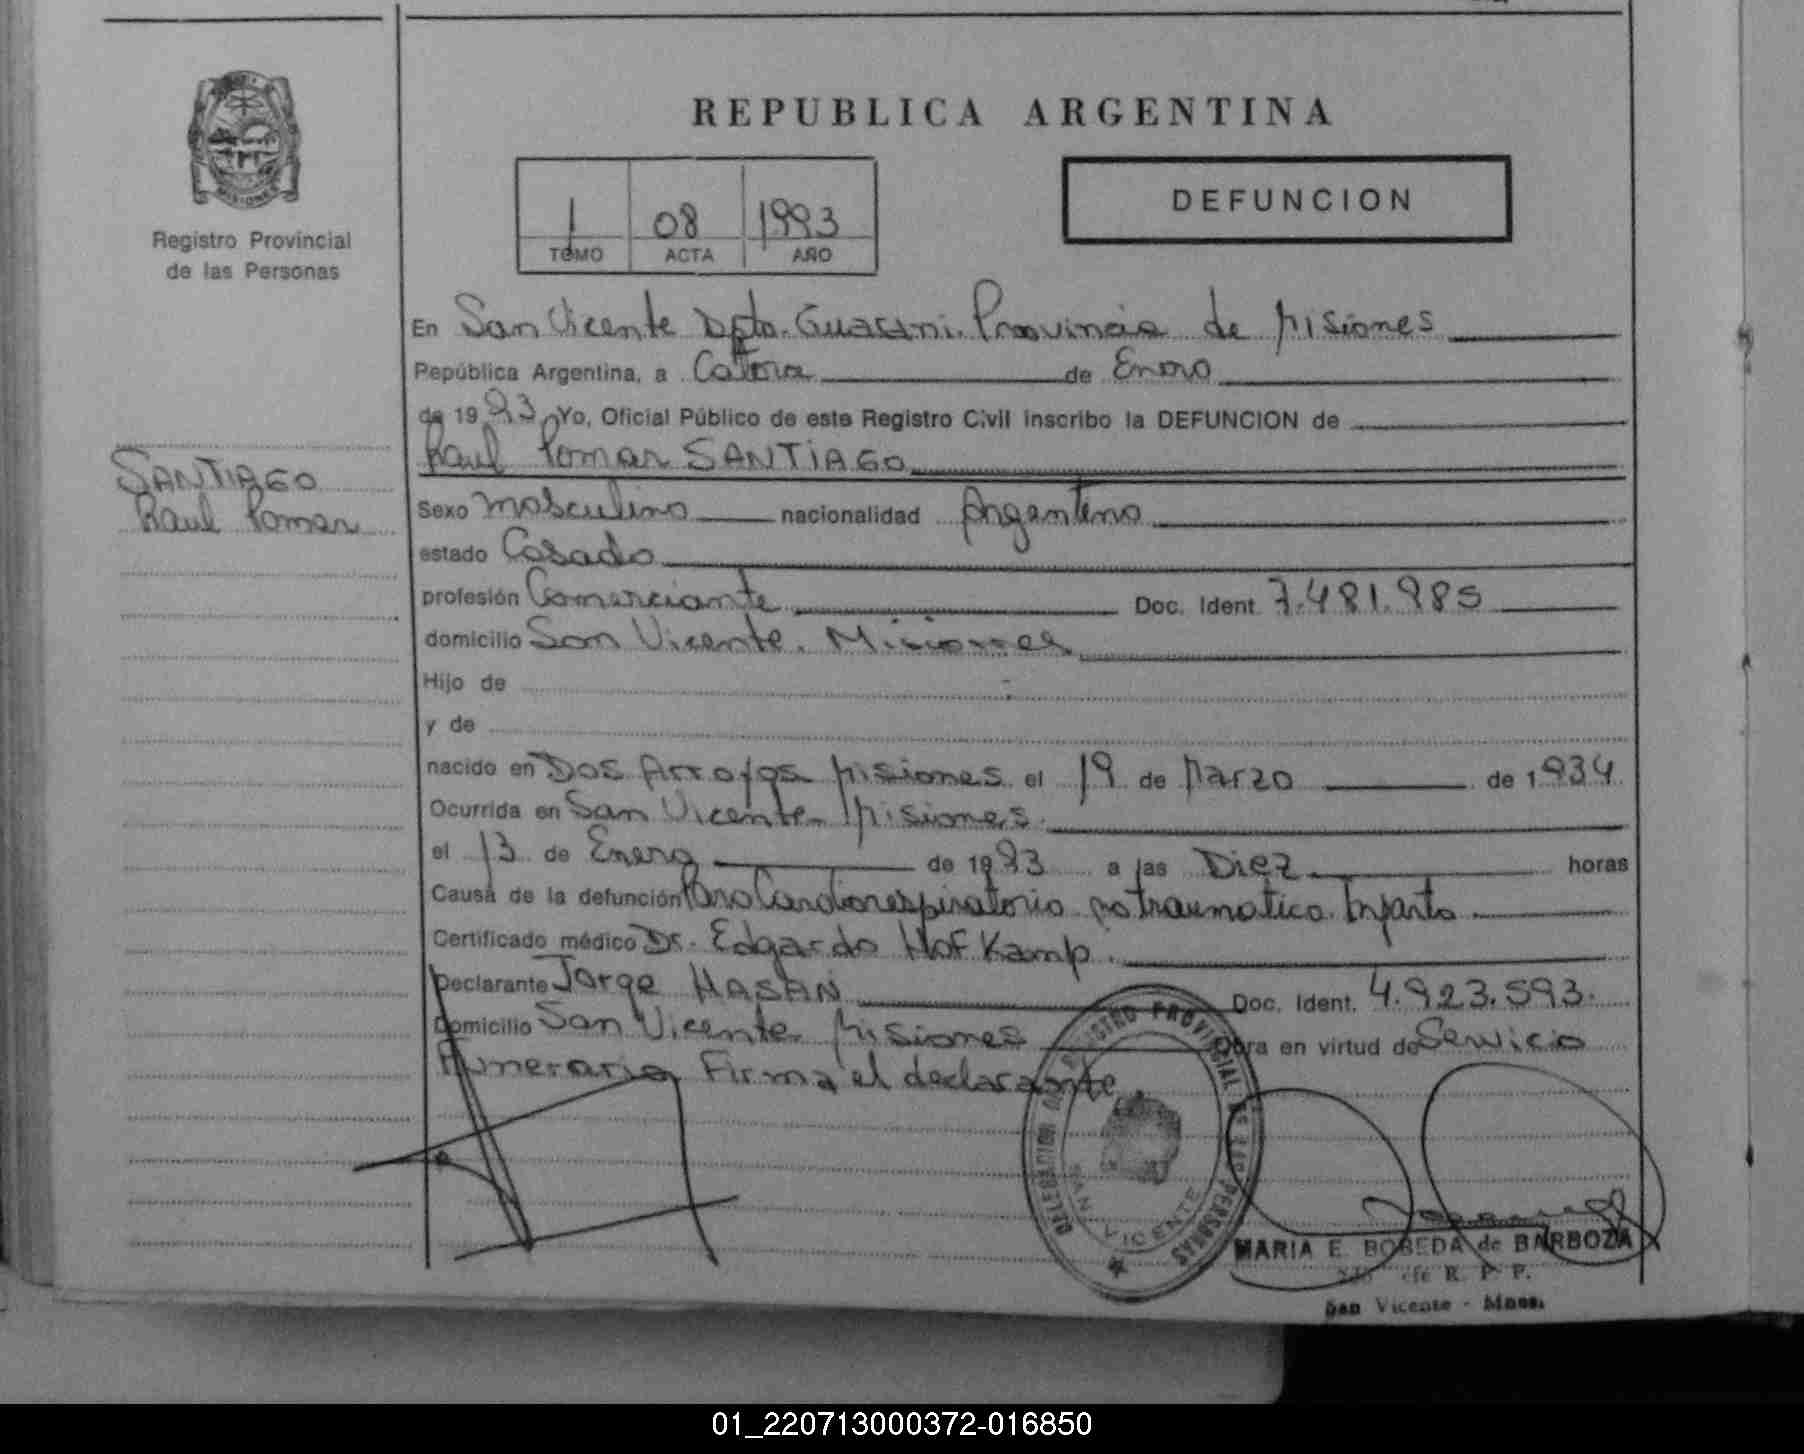 REPUBLICA ARGENTINA
1 08 1993
TOMO ACTA AÑO
DEFUNCION
MISIONES
Registro Provincial
de las Personas
SANTIAGO
Raul Pomar
En San Vicente Dpto. Guarani. Provincia de Misiones
República Argentina, a Catorce de Enero
de 1993 Yo, Oficial Público de este Registro Civil inscribo la DEFUNCION de
Raul Pomar SANTIAGO
Sexo Masculino nacionalidad Argentino
estado Casado
profesión Comerciante Doc. Ident. 7.481.985
domicilio San Vicente. Misiones
Hijo de
y de
nacido en Dos Arroyos Misiones el 19 de Marzo de 1934
Ocurrida en San Vicente Misiones
el 13 de Enero de 1993 a las Diez horas
Causa de la defunción Paro Cardiorespiratorio no traumatico. Infarto
Certificado médico Dr. Edgardo Hof Kamp.
Declarante Jorge HASAN Doc. Ident. 4.923.593.
Domicilio San Vicente Misiones Obra en virtud de Servicio
Funerario Firma el declarante
DELEGACION DEL REGISTRO PROVINCIAL DE LAS PERSONAS
SAN VICENTE
MARIA E. BOBEDA de BARBOZA
R. P. P.
San Vicente - Mnes.
01_220713000372-016850